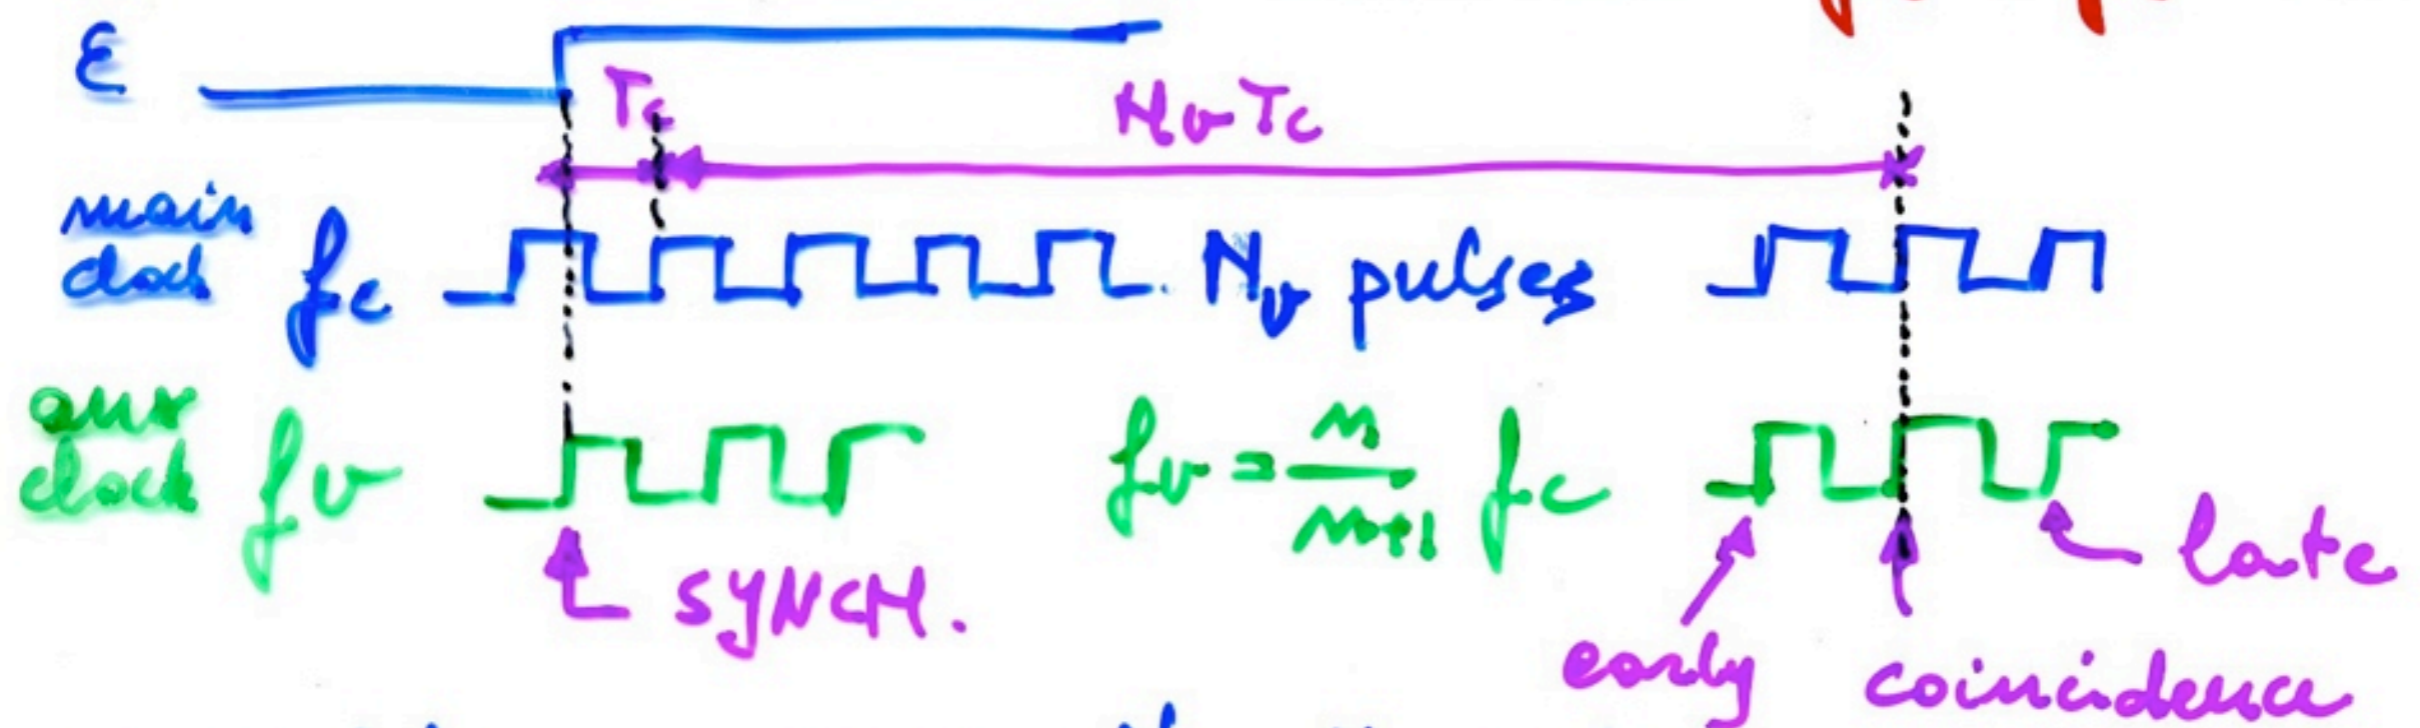 ε
Tε NvTc
main
clock fc Nv pulses
aux
clock fv fv = n/n+1 fc
SYNCH.
late
early coincidence